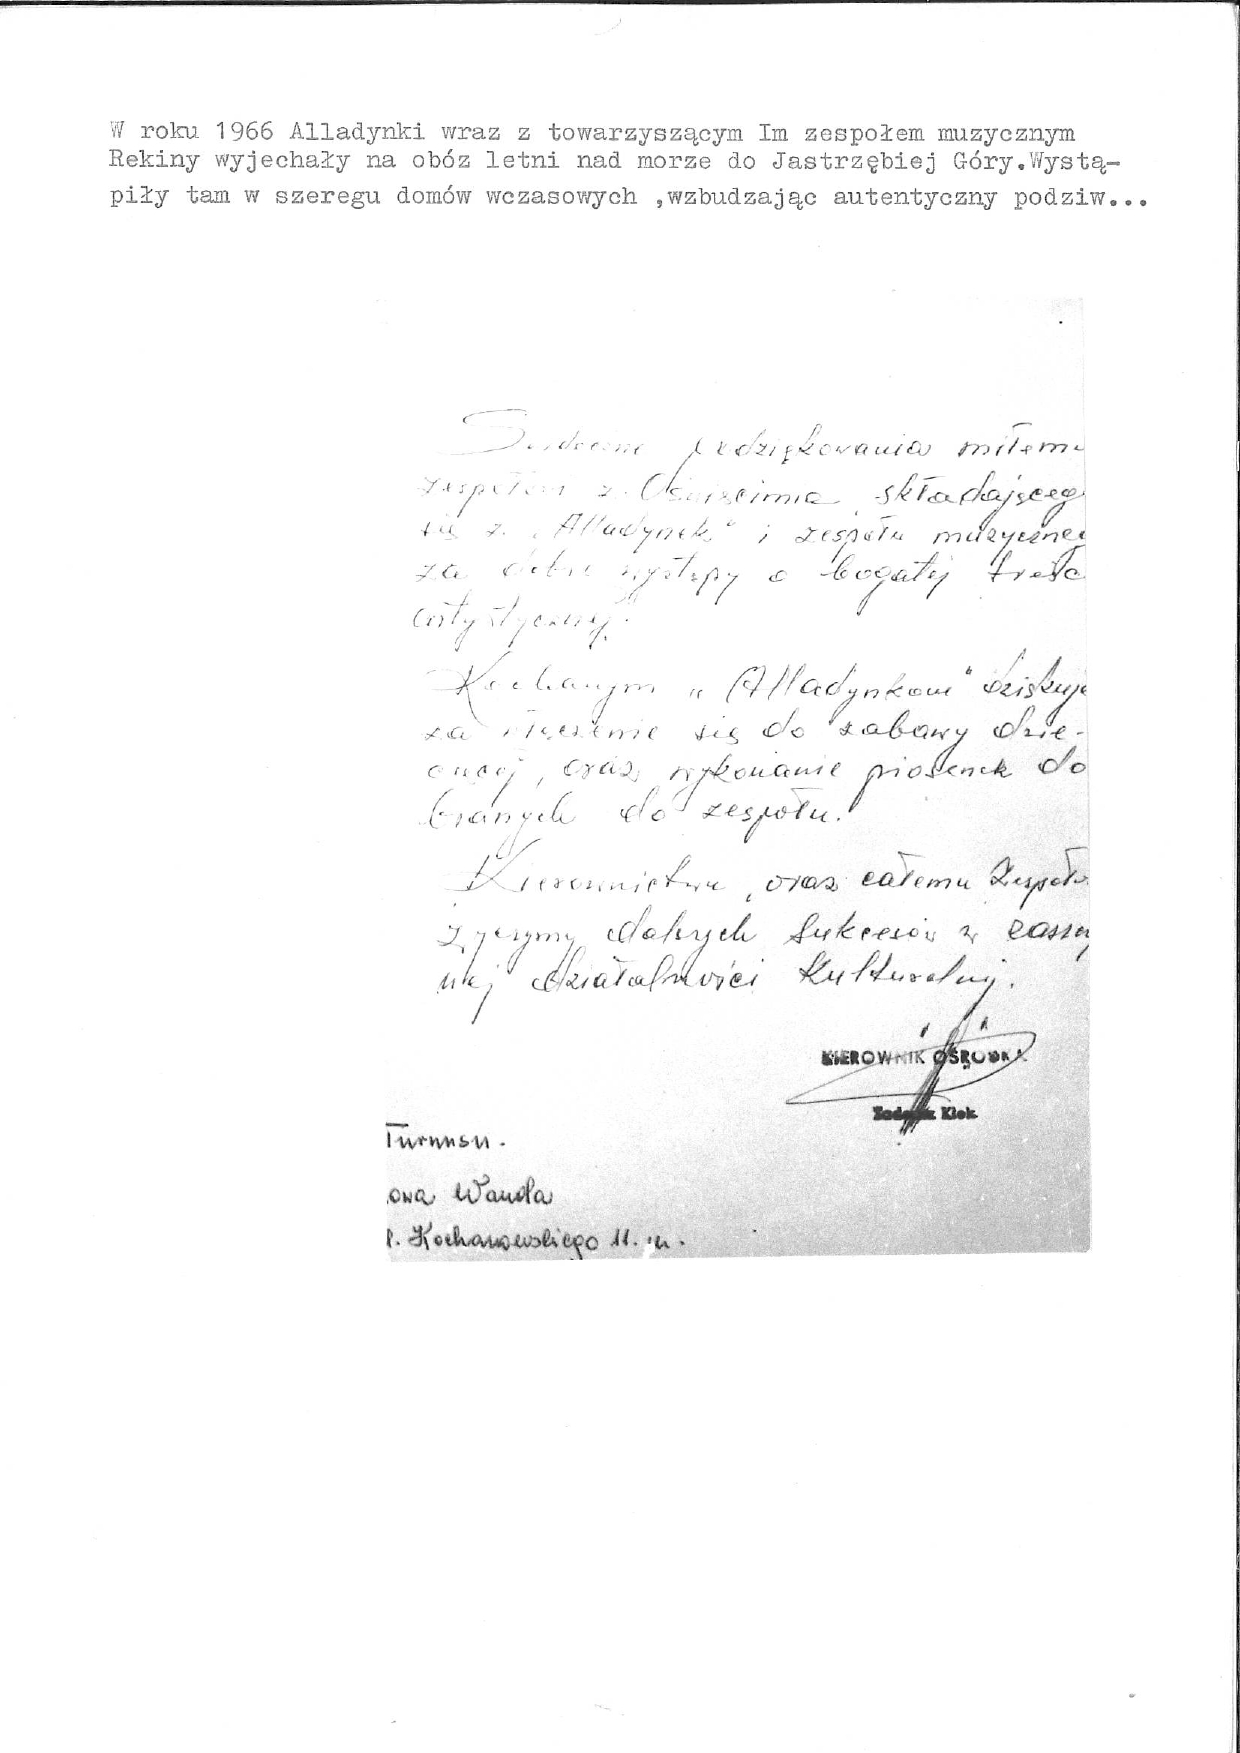 W roku 1966 Alladynki wraz z towarzyszącym Im zespołem muzycznym
Rekiny wyjechały na obóz letni nad morze do Jastrzębiej Góry.Wystą-
piły tam w szeregu domów wczasowych ,wzbudzając autentyczny podziw...
Serdeczne podziękowania miłemu
zespołowi z Oświęcimia składającego
się z "Alladynek" i zespołu muzycznego
za dobre występy o bogatej treści
artystycznej.
Kochanym "Alladynkom" dziękuję
za włączenie się do zabawy dzie-
cięcej, oraz wykonanie piosenek do
branych do zespołu.
Kierownictwu, oraz całemu Zespołu
życzymy dobrych sukcesów w zaszczy
tnej działalności Kulturalnej.
KIEROWNIK OŚRODKA
Klok
Turnusu.
owa Wanda
l. Kochanowskiego 11. m.